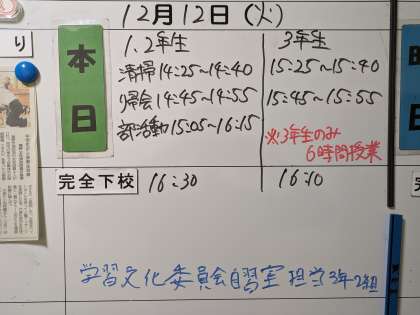 12月12日(火)
り
本日
1.2年生
清掃14:25~14:40
り帰会14:45~14:55
部活動15:05~16:15
3年生
15:25~15:40
15:45~15:55
※3年生のみ
6時間授業
完全下校
16:30
16:10
学習文化委員会自習室担当3年2組